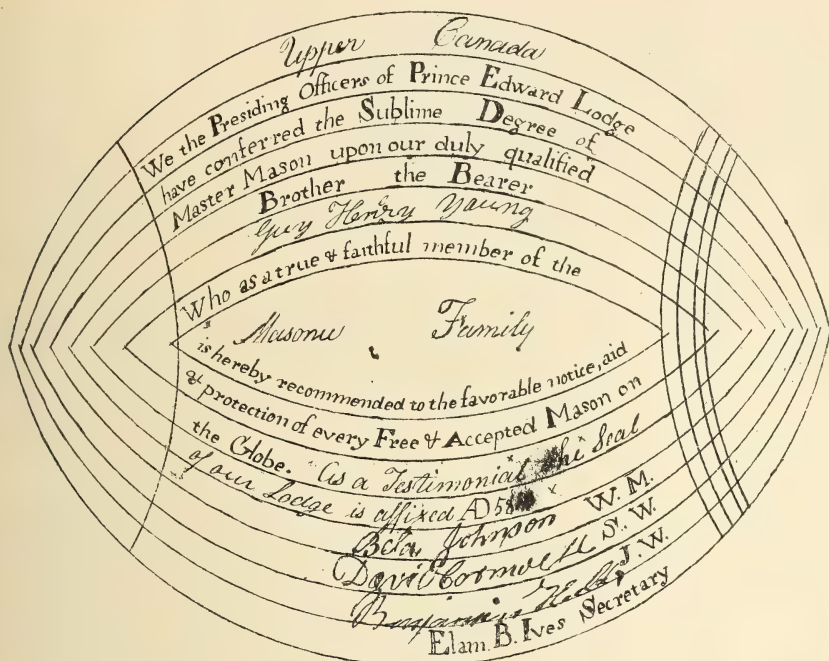 Upper Canada
We the Presiding Officers of Prince Edward Lodge
have conferred the Sublime Degree of
Master Mason upon our duly qualified
Brother the Bearer
Guy Henry Young
Who as a true & faithful member of the
Masonic Family
is hereby recommended to the favorable notice, aid
& protection of every Free & Accepted Mason on
the Globe. As a Testimonial the Seal
of our Lodge is affixed AD 58
Bela Johnson W. M.
David S. W.
Benjamin J. W.
Elam. B. Ives Secretary